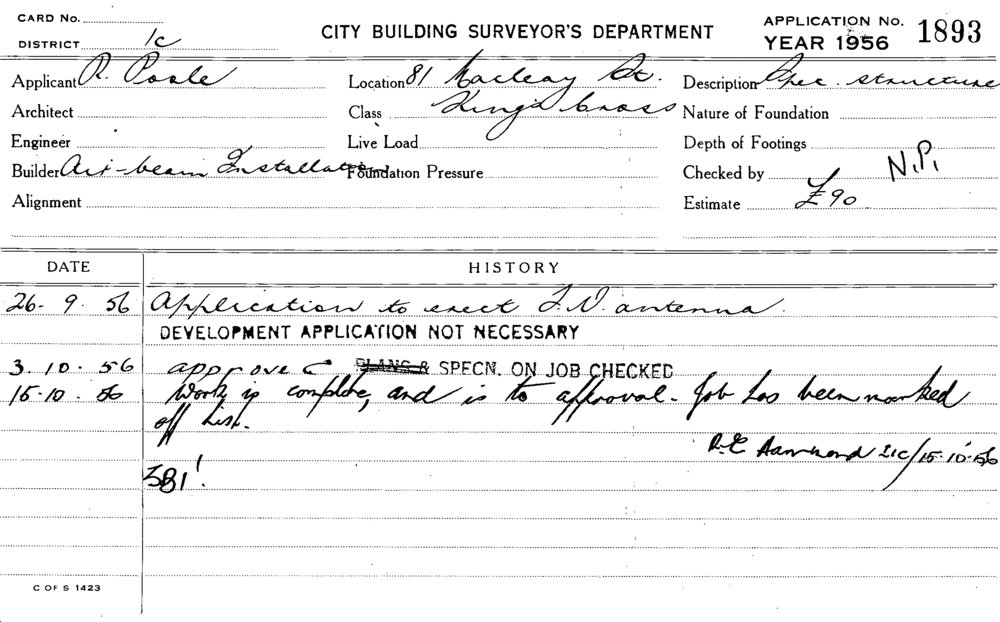 CARD No.
DISTRICT 1c
CITY BUILDING SURVEYOR'S DEPARTMENT
APPLICATION No. 1893
YEAR 1956
Applicant R. Poole
Location 81 Macleay St.
Description Spec. structure
Architect
Class Kings Cross
Nature of Foundation
Engineer
Live Load
Depth of Footings
Builder Art-beam Installation
Foundation Pressure
Checked by N.P.
Alignment
Estimate £90
DATE
HISTORY
26- 9. 56 Application to erect T.V. antenna.
DEVELOPMENT APPLICATION NOT NECESSARY
3. 10. 56 approve C PLANS & SPECN. ON JOB CHECKED
15-10. 56 Work is complete, and is to approval. Job has been marked
off List.
R.E 21c/15.10.56
381!
C OF S 1423